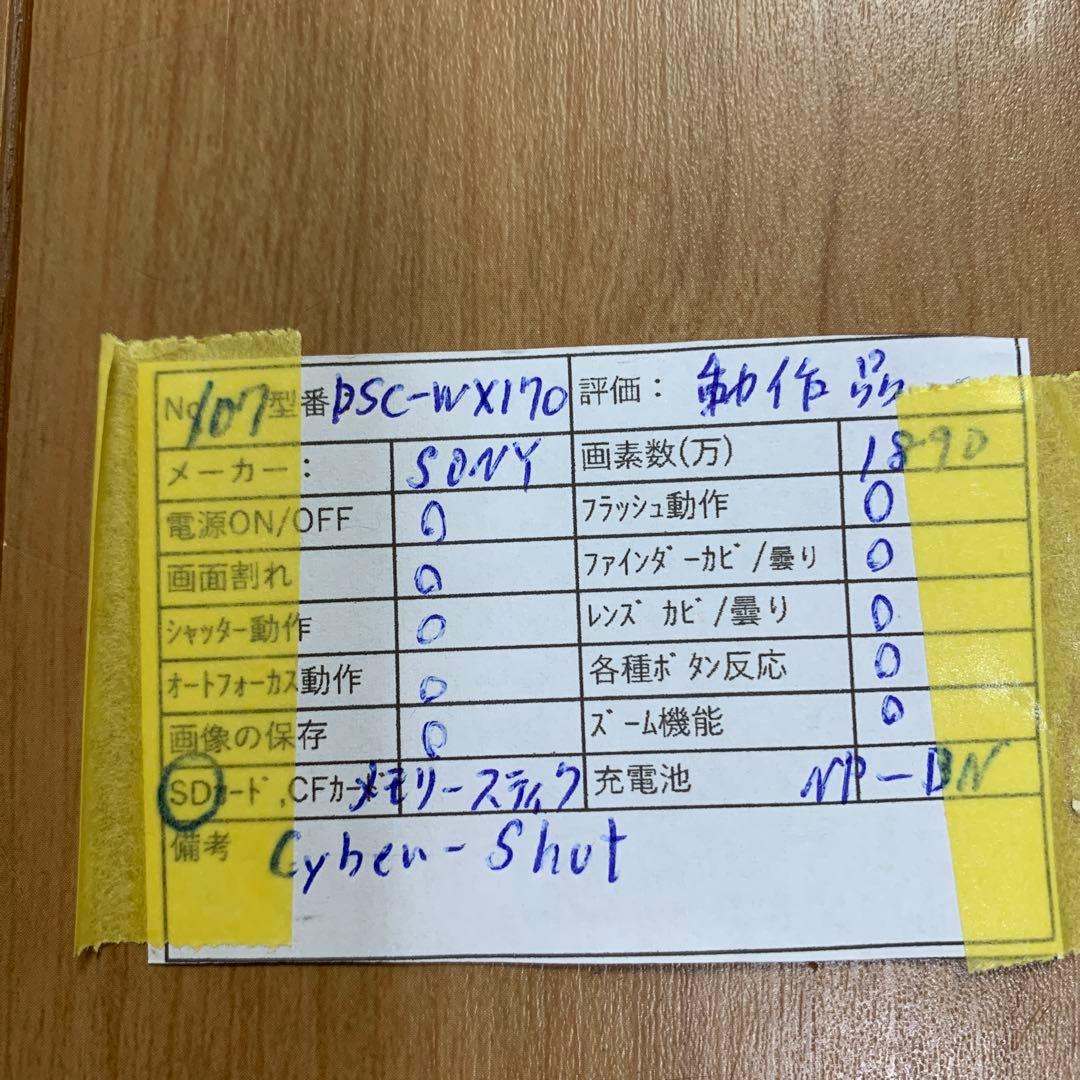 No 107 型番 DSC-WX170 評価： 動作品
メーカー： SONY 画素数(万) 1890
電源ON/OFF O ﾌﾗｯｼｭ動作 O
画面割れ O ﾌｧｲﾝﾀﾞｰｶﾋﾞ/曇り O
ｼｬｯﾀｰ動作 O ﾚﾝｽﾞ ｶﾋﾞ/曇り O
ｵｰﾄﾌｫｰｶｽ動作 O 各種ﾎﾞﾀﾝ反応 O
画像の保存 O ｽﾞｰﾑ機能 O
SDｶｰﾄﾞ,CFｶｰﾄﾞ メモリースティク 充電池 NP-BN
備考 Cyber-Shot